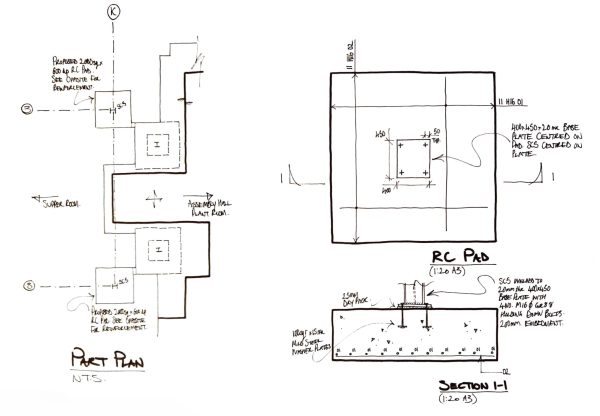 K
PROPOSED 2000sq x
600 dp RC PAD.
SEE OPPOSITE FOR
REINFORCEMENT.
SC5
I
I
SUPPER ROOM.
ASSEMBLY HALL
PLANT ROOM.
8
SC5
PROPOSED 2000sq x 600 dp
RC PAD SEE OPPOSITE
FOR REINFORCEMENT.
PART PLAN
N.T.S.
11 H16 02
11 H16 01
450
50
TYP.
400
400x450x20mm BASE
PLATE CENTRED ON
PAD. SC5 CENTRED ON
PLATE.
1
1
RC PAD
(1:20 A3)
25mm
DRY PACK
SC5 WELDED TO
20mm thk 400x450
BASE PLATE WITH
4No. M16 Gr 8.8
HOLDING DOWN BOLTS.
200mm EMBEDMENT.
MILD STEEL
WASHER PLATES
02
SECTION 1-1
(1:20 A3)